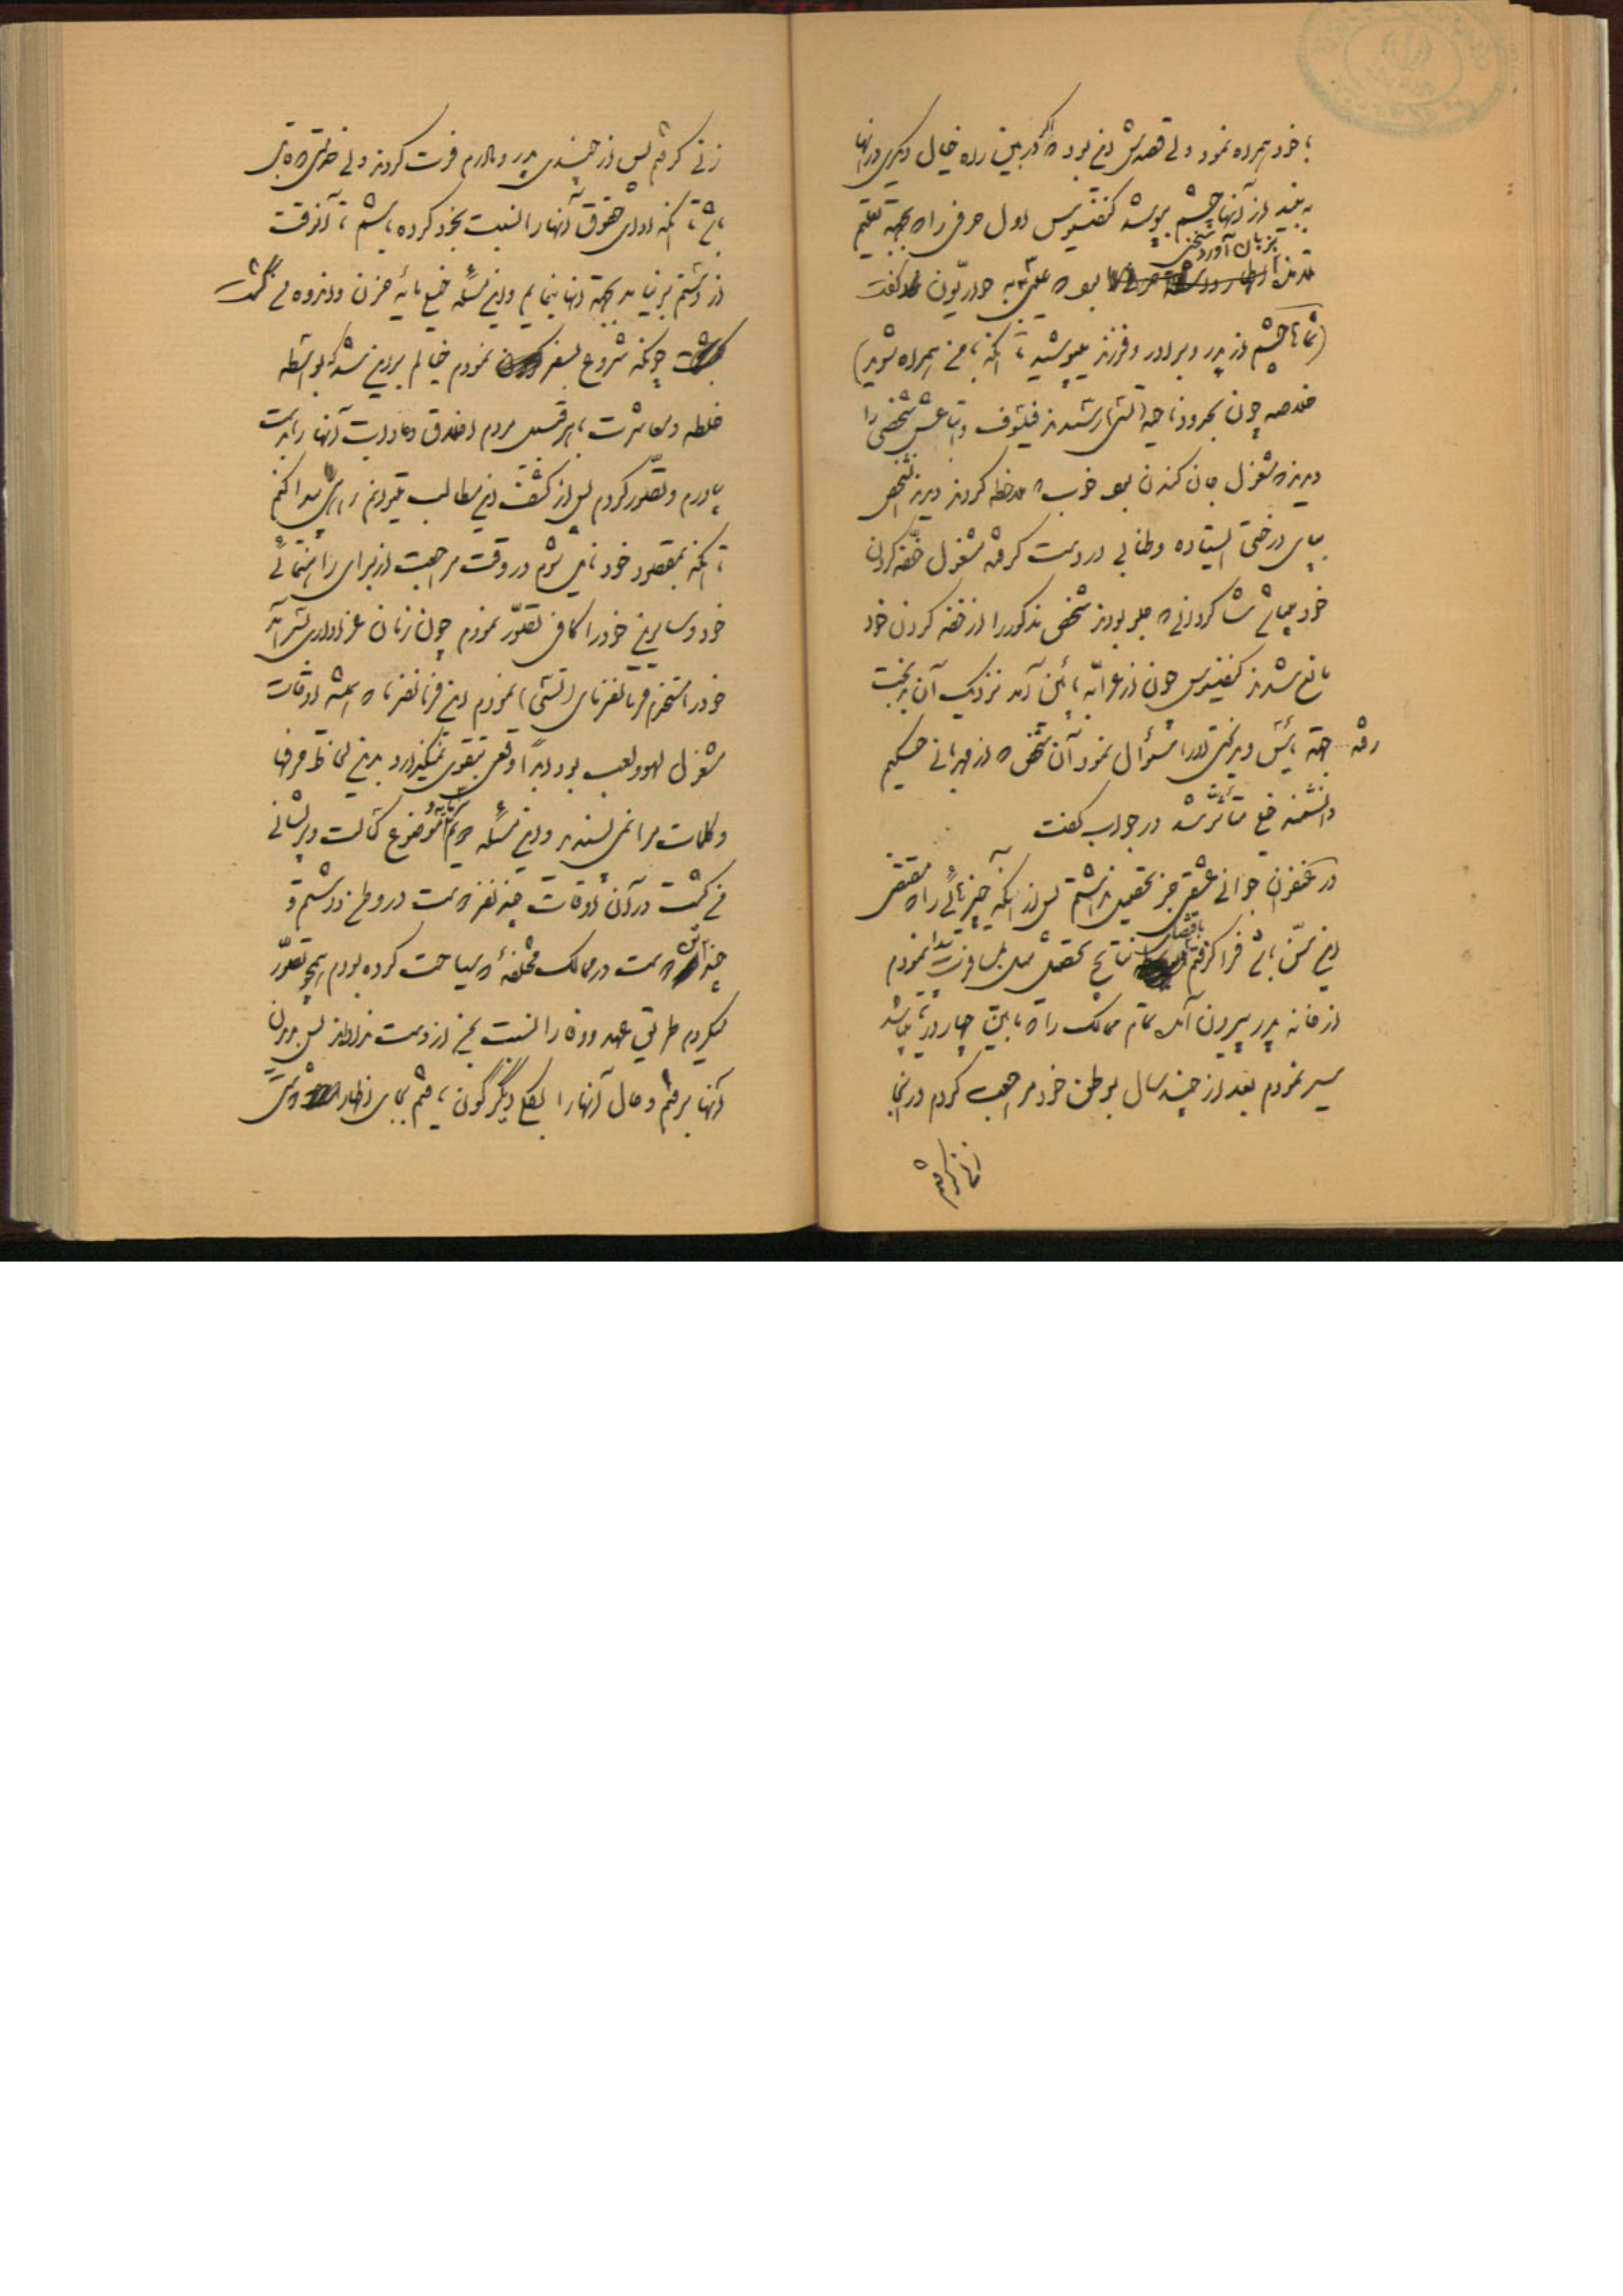 با خود همراه نمود ولی قصدش این بود که اگر در بین راه خیال دیگری در آنها
به بیند از آنها چشم بپوشد کنفسیوس اول حرفی را که بجهة تعلیم
بزبان آورد سخنی
بود که عیسی به حواریون گفت
(شما تا چشم از پدر و برادر و فرزند نپوشید تا آنکه با من همراه شوید)
خلاصه چون بحدود رسیدند فیلسوف و اتباعش شخصی را
دیدند که مشغول جان کندن بود خوب که ملاحظه کردند دیدند شخص
بپای درختی ایستاده و طنابی در دست گرفته مشغول خفه کردن
خود میباشد شاگردانی که جلو بودند شخص مذکور را از خفه کردن خود
مانع شدند کنفسیوس چون از عرابه پائین آمد نزدیک آن بدبخت
رفته جهة یأس و دلتنگی او را سئوال نمود آن شخص که از مهربانی حکیم
دانشمند خیلی متأثر شد در جواب گفت
در عنفوان جوانی عشقی جز تحصیل نداشتم پس از آنکه چیزهائی را که مقتضی
این سن باشد فرا گرفتم باقتضای نتایج تحصیل میل بمسافرت پیدا نمودم
از خانه پدر بیرون آمده تمام ممالک را که مابین چهار دریا میباشد
سیر نمودم بعد از چند سال بوطن خود مراجعت کردم در آنجا
زنی گرفتم پس از چندی پدر و مادرم فوت کردند ولی خدمتی که قابل
باشد تا آنکه ادای حقوق آنها را نسبت بخود کرده باشم تا آنوقت
از دستم بر نیامد بجهة آنها بنمایم و این مسئله خیلی مایه حزن و اندوه من گشت
چونکه شروع بسفر نمودم خیالم بر این شد که بواسطه
خلطه و معاشرت با هر قسم مردم اخلاق و عادات آنها را بدست
بیاورم و تصور کردم پس از کشف این مطالب میتوانم راهی پیدا کنم
تا آنکه بمقصود خود نایل شوم در وقت مراجعت از برای راهنمائی
خود و سایرین خود را کافی تصور نمودم چون زمان عزاداری بسر آمد
خود را مستخدم فرمانفرمای (تسی) نمودم این فرمانفرما که همیشه اوقات
مشغول لهو و لعب بود ابداً وقعی بتقوی نمیگذارد بدین لحاظ حرفها
و کلمات مرا نمی پسندید و این مسئله هم سرمایه و موضوع کسالت و پریشانی
من گشت در آن اوقات چند نفر دوست در وطن داشتم و
چند نفر دوست در ممالک مختلفه که سیاحت کرده بودم همچو تصور
میکردم طریق عهد و وفا را نسبت بمن از دست نداده‌اند پس بدیدن
آنها برفتم و حال آنها را بکلی دیگرگون یافتم بجای اظهار دوستی